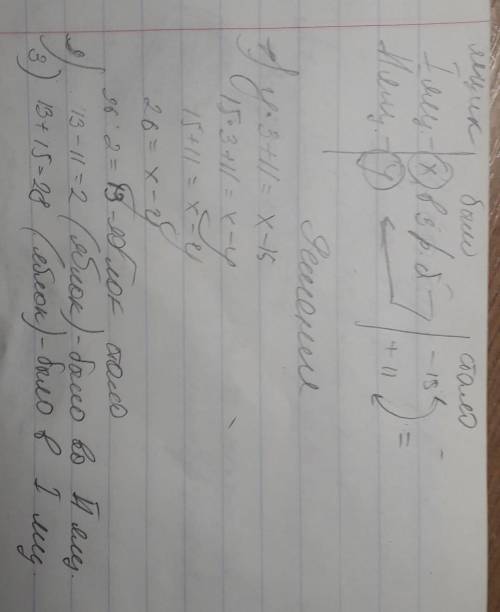 ящик | было | стало
I ящ. - (x) в 3 р. б | - 15
II ящ. - (y) | + 11 =
Решение
1) y · 3 + 11 = x - 15
15 · 3 + 11 = x - y
15 + 11 = x - y
26 = x - y
26 : 2 = 13 - яблок стало
2) 13 - 11 = 2 (яблок) - было во II ящ.
3) 13 + 15 = 28 (яблок) - было в I ящ.